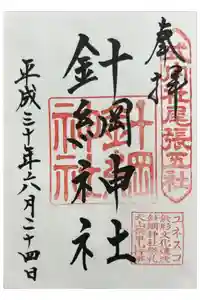 奉拝
尾張五社
針綱神社
針綱神社
平成三十年六月二十四日
ユネスコ
無形文化遺産
針綱神社祭礼